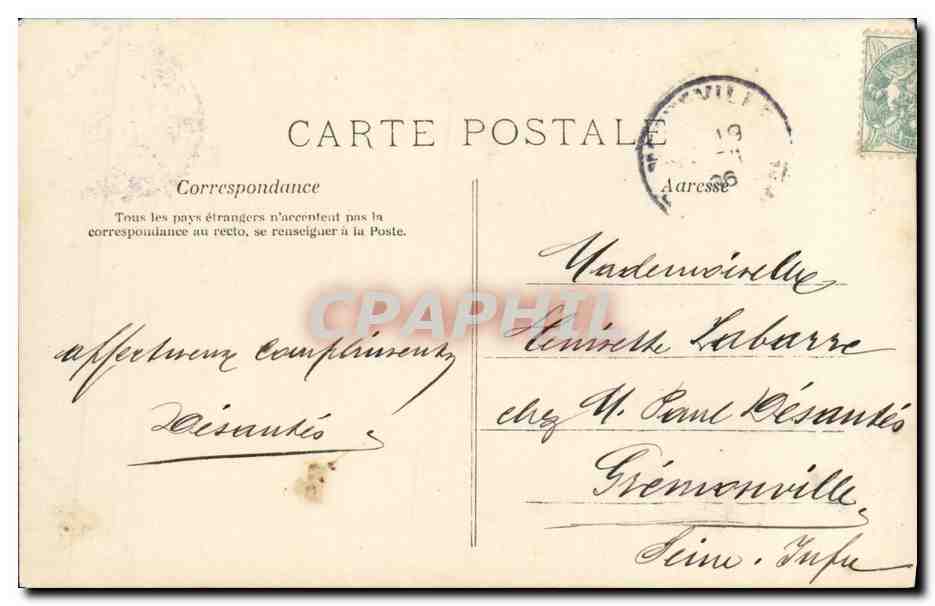 CARTE POSTALE
Correspondance
Adresse
Tous les pays étrangers n'acceptent pas la
correspondance au recto, se renseigner à la Poste.
19
06
CPAPHIL
affectueux compliments
Désantés
Mademoiselle
Henriette Labarre
chez M. Paul Désantés
Grémonville
Seine-Infre